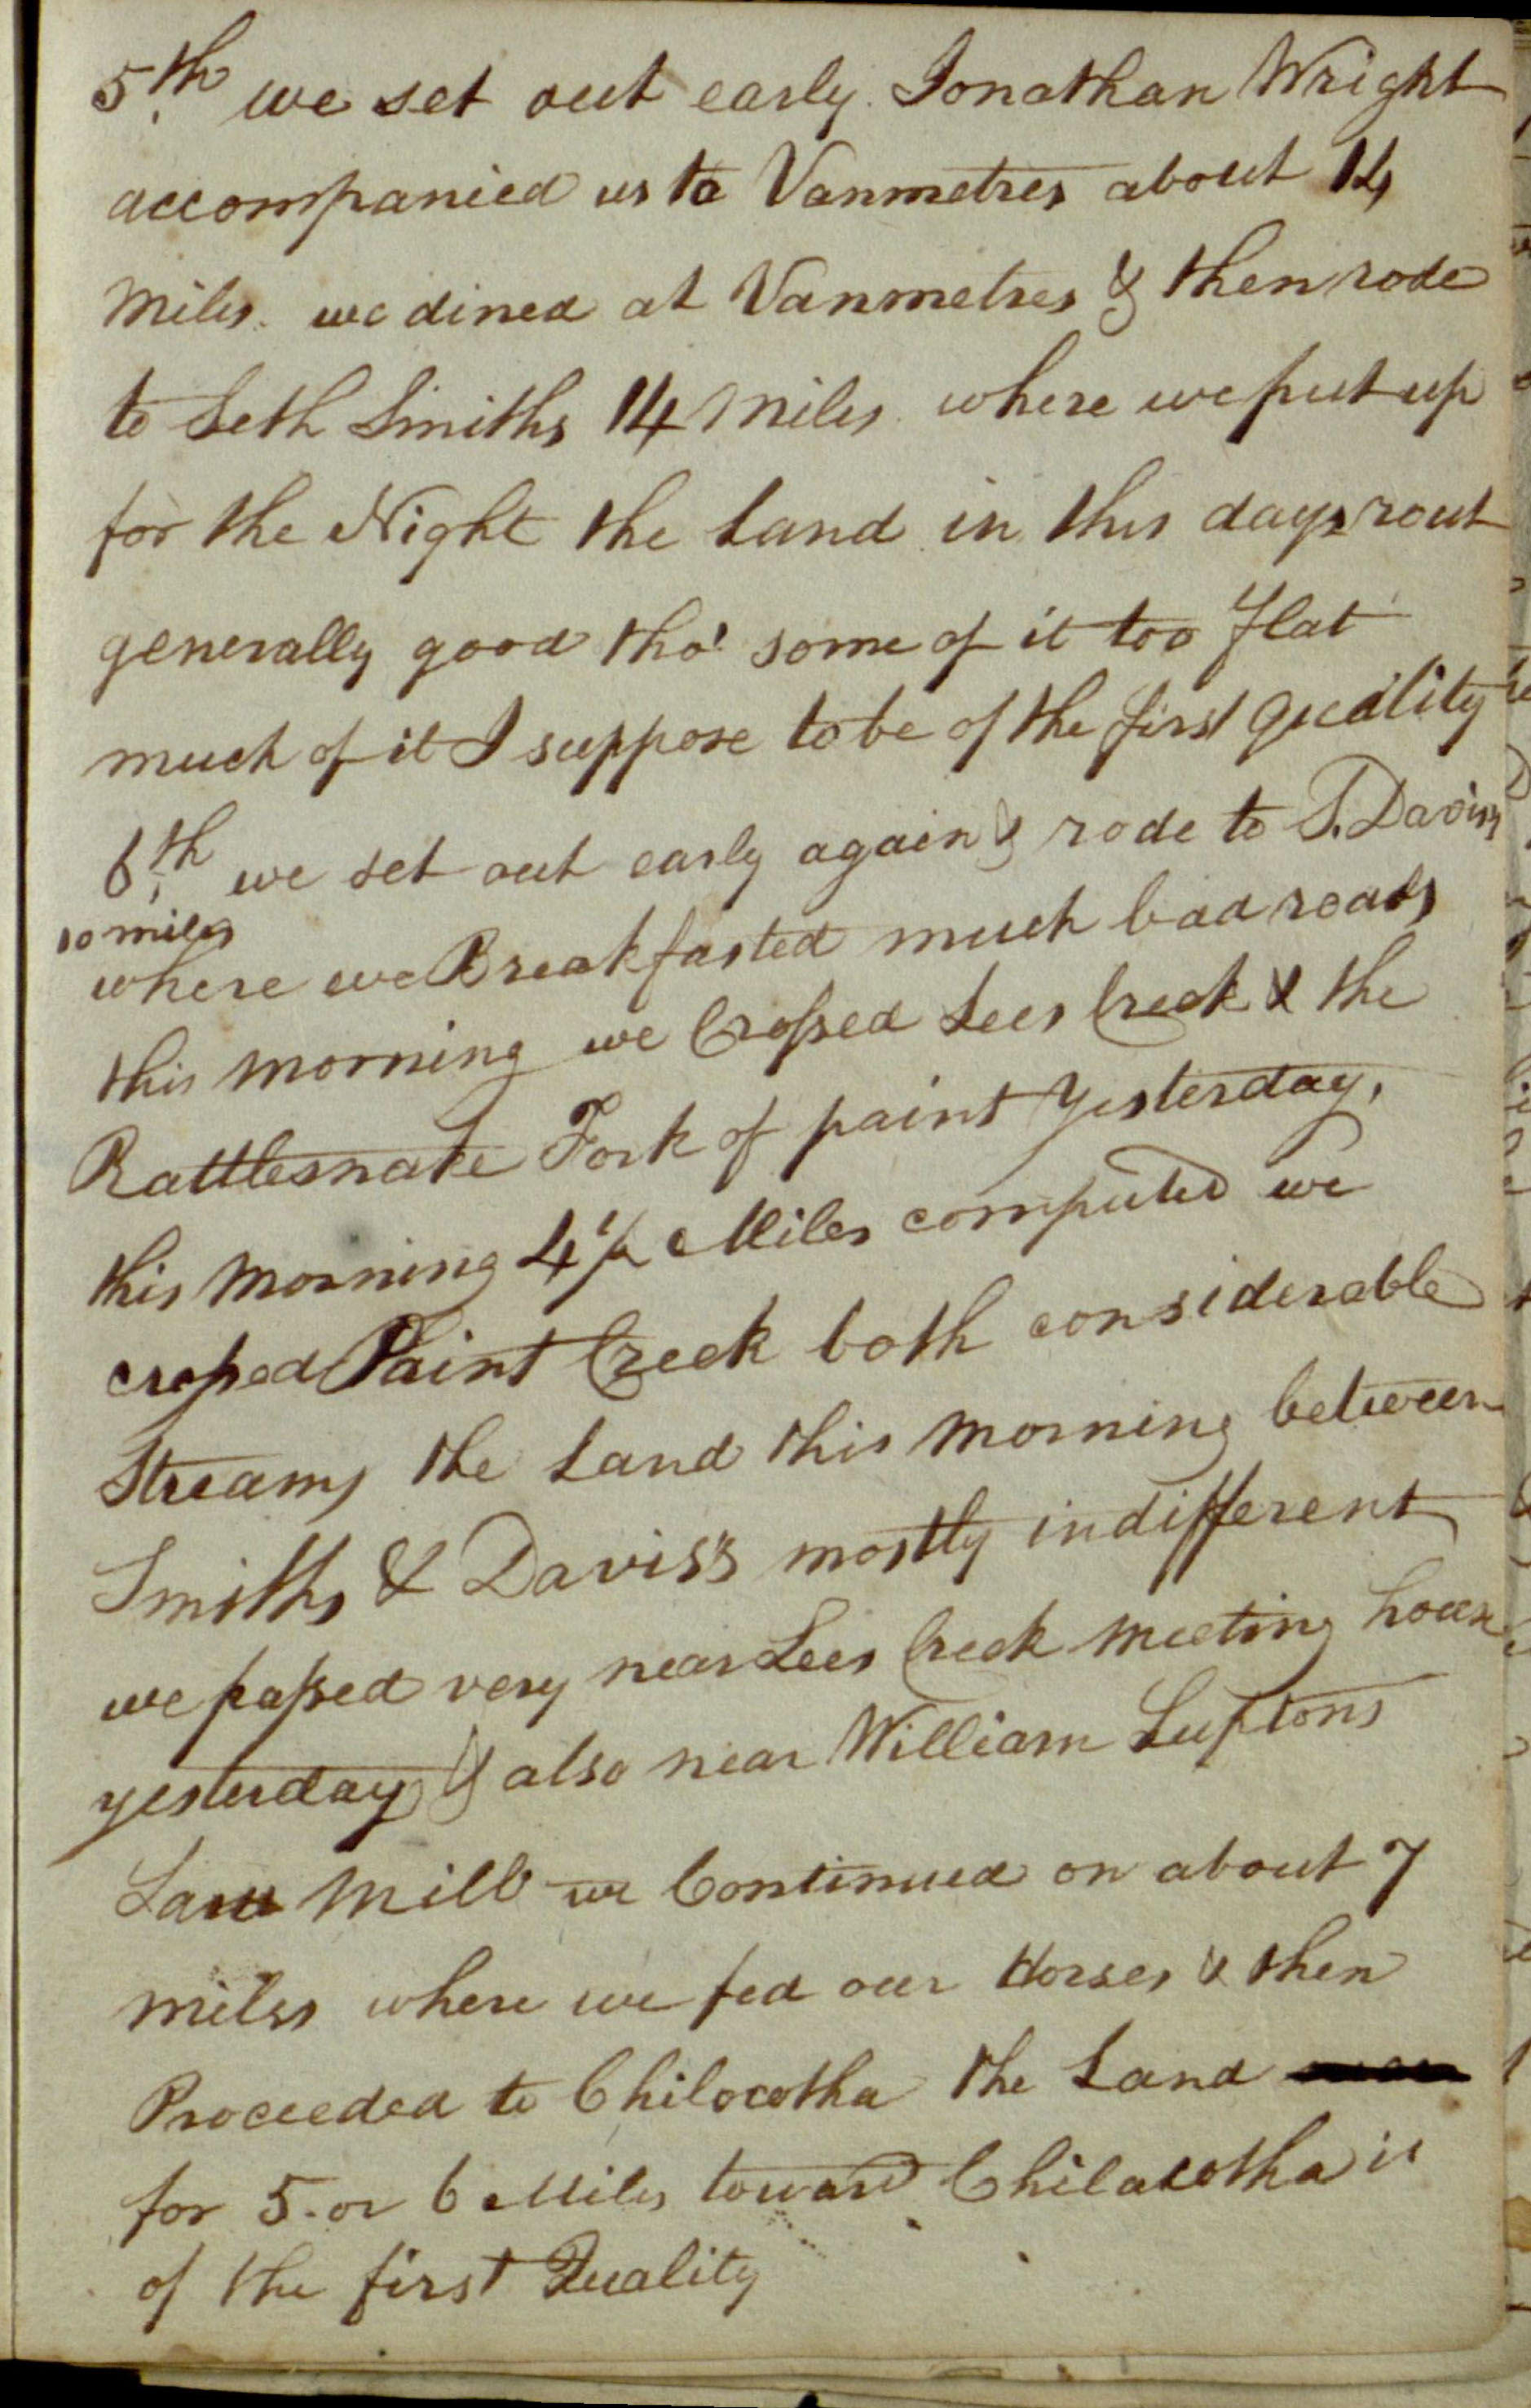 5th we set out early. Jonathan Wright
accompanied us to Vanmetres about 14
Miles. we dined at Vanmetres & then rode
to Seth Smiths 14 Miles where we put up
for the Night the Land in this days rout
generally good tho' some of it too flat
much of it I suppose to be of the first quality
6th we set out early again & rode to T. Davis's
10 miles
where we Breakfasted much bad roads
this morning we Crossed Lees Creek & the
Rattlesnake Fork of paint yesterday,
this Morning 4½ Miles computed we
crossed Paint Creek both considerable
Streams the Land this Morning between
Smiths & Davis's mostly indifferent
we passed very near Lees Creek Meeting house
yesterday & also near William Luptons
Saw Mill we Continued on about 7
miles where we fed our Horses & then
Proceeded to Chilocotha the Land
for 5 or 6 Miles toward Chilacotha is
of the first Quality